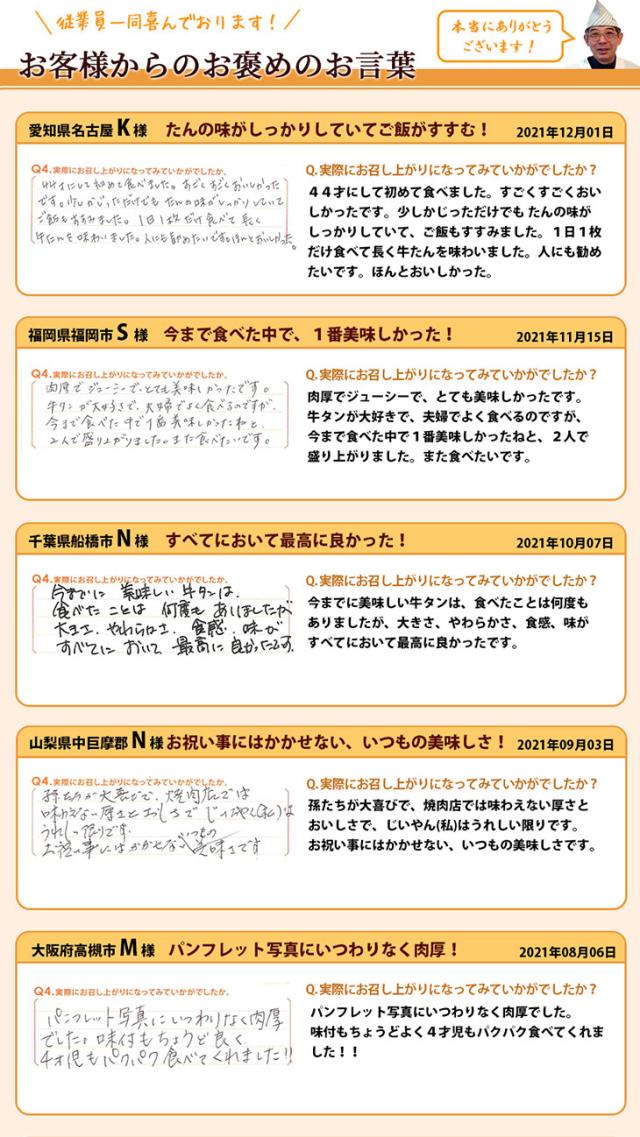 従業員一同喜んでおります！
本当にありがとう
ございます！
お客様からのお褒めのお言葉
愛知県名古屋 K 様 たんの味がしっかりしていてご飯がすすむ！ 2021年12月01日
Q4.実際にお召し上がりになってみていかがでしたか。
44才にして初めて食べました。すごくすごくおいしかった
です。少しかじっただけでも たんの味がしっかりしていて
ご飯もすすみました。1日1枚だけ食べて長く
牛たんを味わいました。人にも勧めたいです。ほんとおいしかった。
Q.実際にお召し上がりになってみていかがでしたか？
４４才にして初めて食べました。すごくすごくおい
しかったです。少しかじっただけでも たんの味が
しっかりしていて、ご飯もすすみました。１日１枚
だけ食べて長く牛たんを味わいました。人にも勧め
たいです。ほんとおいしかった。
福岡県福岡市 S 様 今まで食べた中で、１番美味しかった！ 2021年11月15日
Q4.実際にお召し上がりになってみていかがでしたか。
肉厚でジューシーで、とても美味しかったです。
牛タンが大好きで、夫婦でよく食べるのですが、
今まで食べた中で1番美味しかったねと、
2人で盛り上がりました。また食べたいです。
Q.実際にお召し上がりになってみていかがでしたか？
肉厚でジューシーで、とても美味しかったです。
牛タンが大好きで、夫婦でよく食べるのですが、
今まで食べた中で１番美味しかったねと、２人で
盛り上がりました。また食べたいです。
千葉県船橋市 N 様 すべてにおいて最高に良かった！ 2021年10月07日
Q4.実際にお召し上がりになってみていかがでしたか。
今までに 美味しい 牛タンは、
食べた ことは 何度も ありましたが
大きさ、やわらかさ、食感、味が
すべてに おいて 最高に 良かったです。
Q.実際にお召し上がりになってみていかがでしたか？
今までに美味しい牛タンは、食べたことは何度も
ありましたが、大きさ、やわらかさ、食感、味が
すべてにおいて最高に良かったです。
山梨県中巨摩郡 N 様 お祝い事にはかかせない、いつもの美味しさ！ 2021年09月03日
Q4.実際にお召し上がりになってみていかがでしたか。
孫たちが大喜びで、焼肉店では
味わえない厚さとおいしさで じいやん(私)は
うれしい限りです。
お祝い事にはかかせない、いつもの美味しさです
Q.実際にお召し上がりになってみていかがでしたか？
孫たちが大喜びで、焼肉店では味わえない厚さと
おいしさで、じいやん(私)はうれしい限りです。
お祝い事にはかかせない、いつもの美味しさです。
大阪府高槻市 M 様 パンフレット写真にいつわりなく肉厚！ 2021年08月06日
Q4.実際にお召し上がりになってみていかがでしたか。
パンフレット写真にいつわりなく肉厚
でした。味付もちょうど良く
4才児もパクパク食べてくれました!!
Q.実際にお召し上がりになってみていかがでしたか？
パンフレット写真にいつわりなく肉厚でした。
味付もちょうどよく４才児もパクパク食べてくれま
した！！